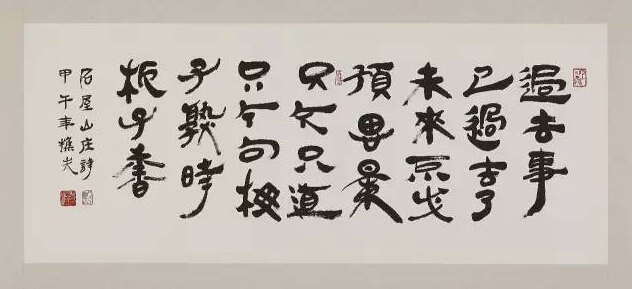 過去事
已過去了
未來不必
預思量
只今只道
只今句梅
子熟時
梔子香
石屋山庄詩
甲午年樵